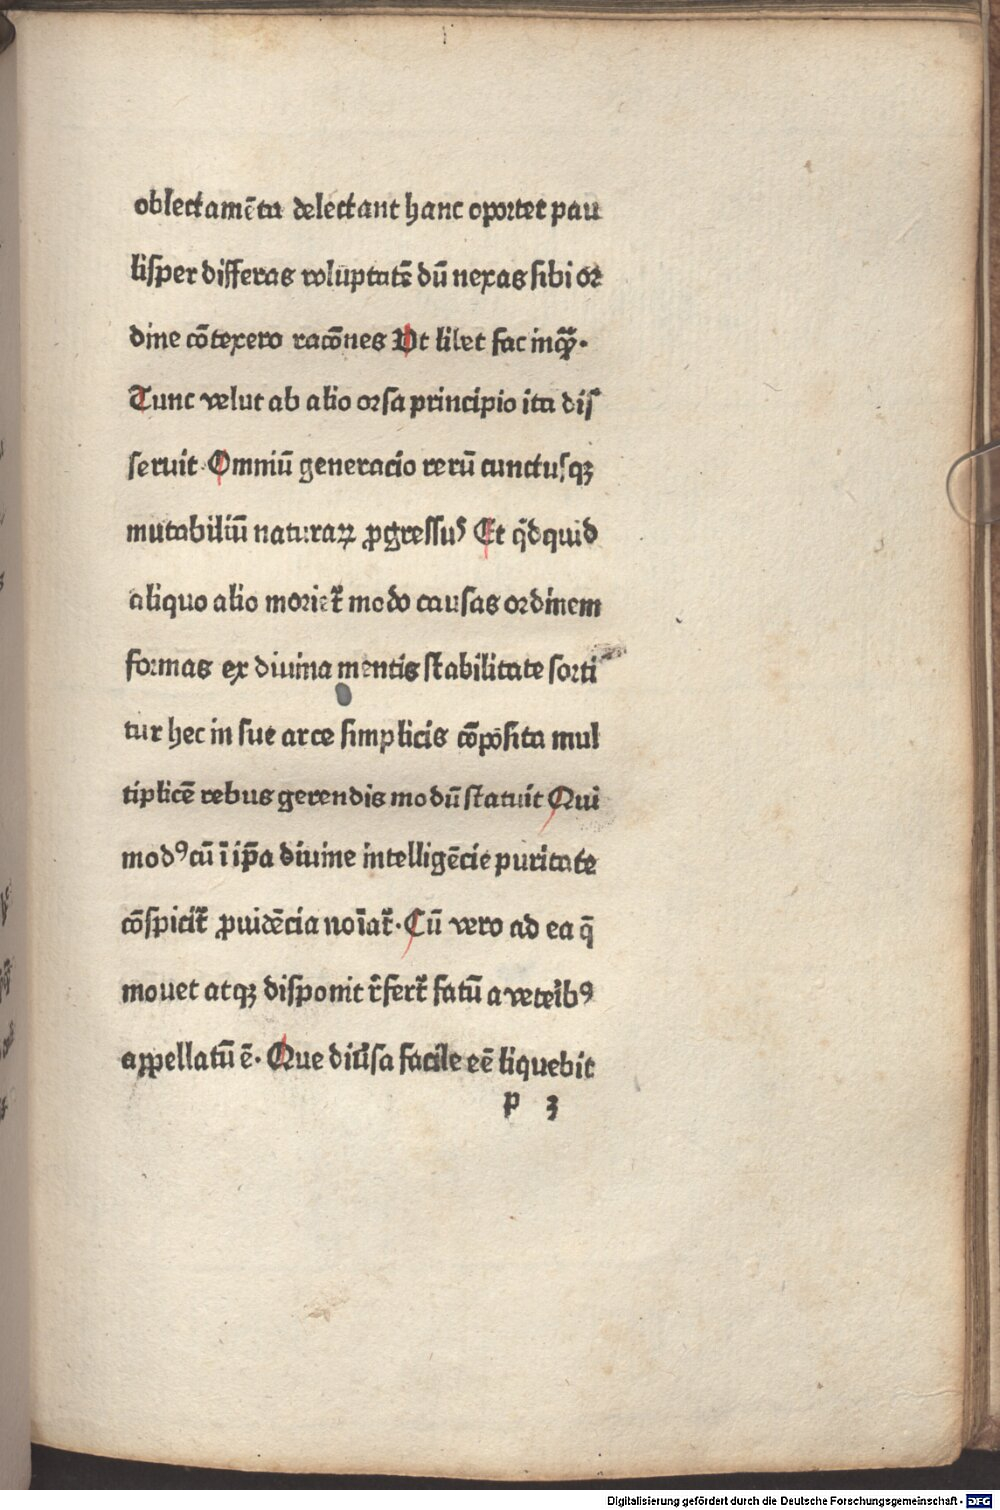 oblectamēta delectant hanc oportet pau
lisper differas voluptatē dū nexas sibi or
dine cōtexero racōnes Ut libet fac inqꝫ.
Tunc velut ab alio orsa principio ita dis
seruit Omniū generacio rerū cunctusqꝫ
mutabiliū naturaꝝ ꝓgressus Et qͥdquid
aliquo alio moriet᷑ modo causas ordinem
formas ex diuina mentis stabilitate sorti
tur hec in sue arce simplicis cōposita mul
tiplicē rebus gerendis modū statuit Qui
modꝰ cū ī ip̄a diuine intelligēcie puritate
cōspicit᷑ ꝓuidēcia noīat᷑. Cū vero ad ea q̄
mouet atqꝫ disponit r̄fert᷑ fatū a veteribꝰ
appellatū ē. Que diūsa facile eē liquebit
p 3
Digitalisierung gefördert durch die Deutsche Forschungsgemeinschaft - DFG